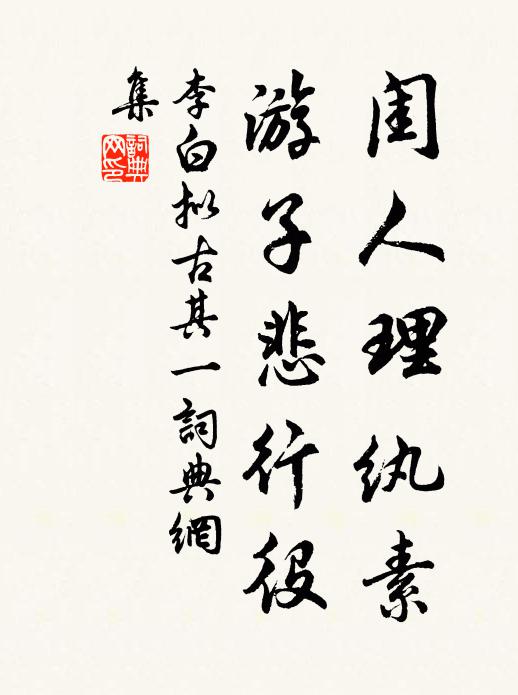 闺人理纨素
游子悲行役
李白拟古其一詞典網
集
詞典网印